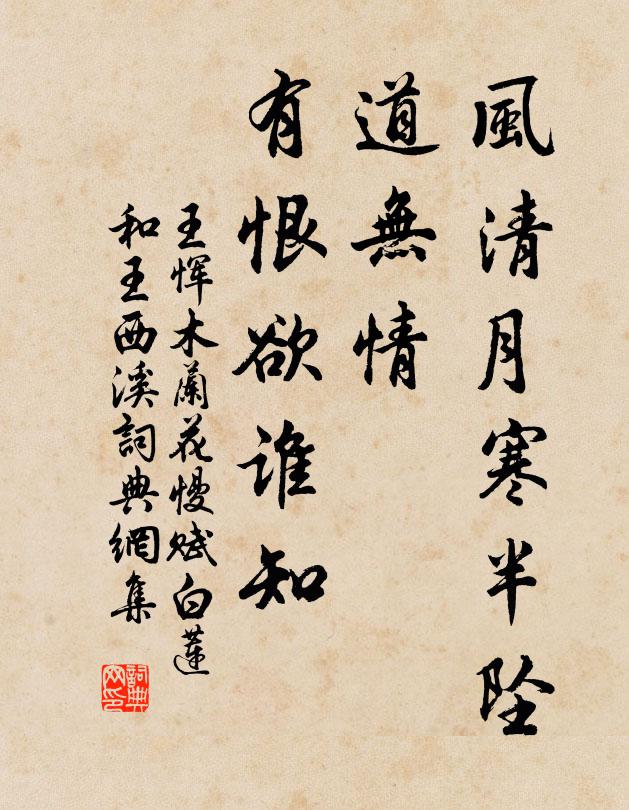 風清月寒半墜
道無情
有恨欲誰知
王恽木蘭花慢賦白蓮
和王西溪詞典網集
詞典网印